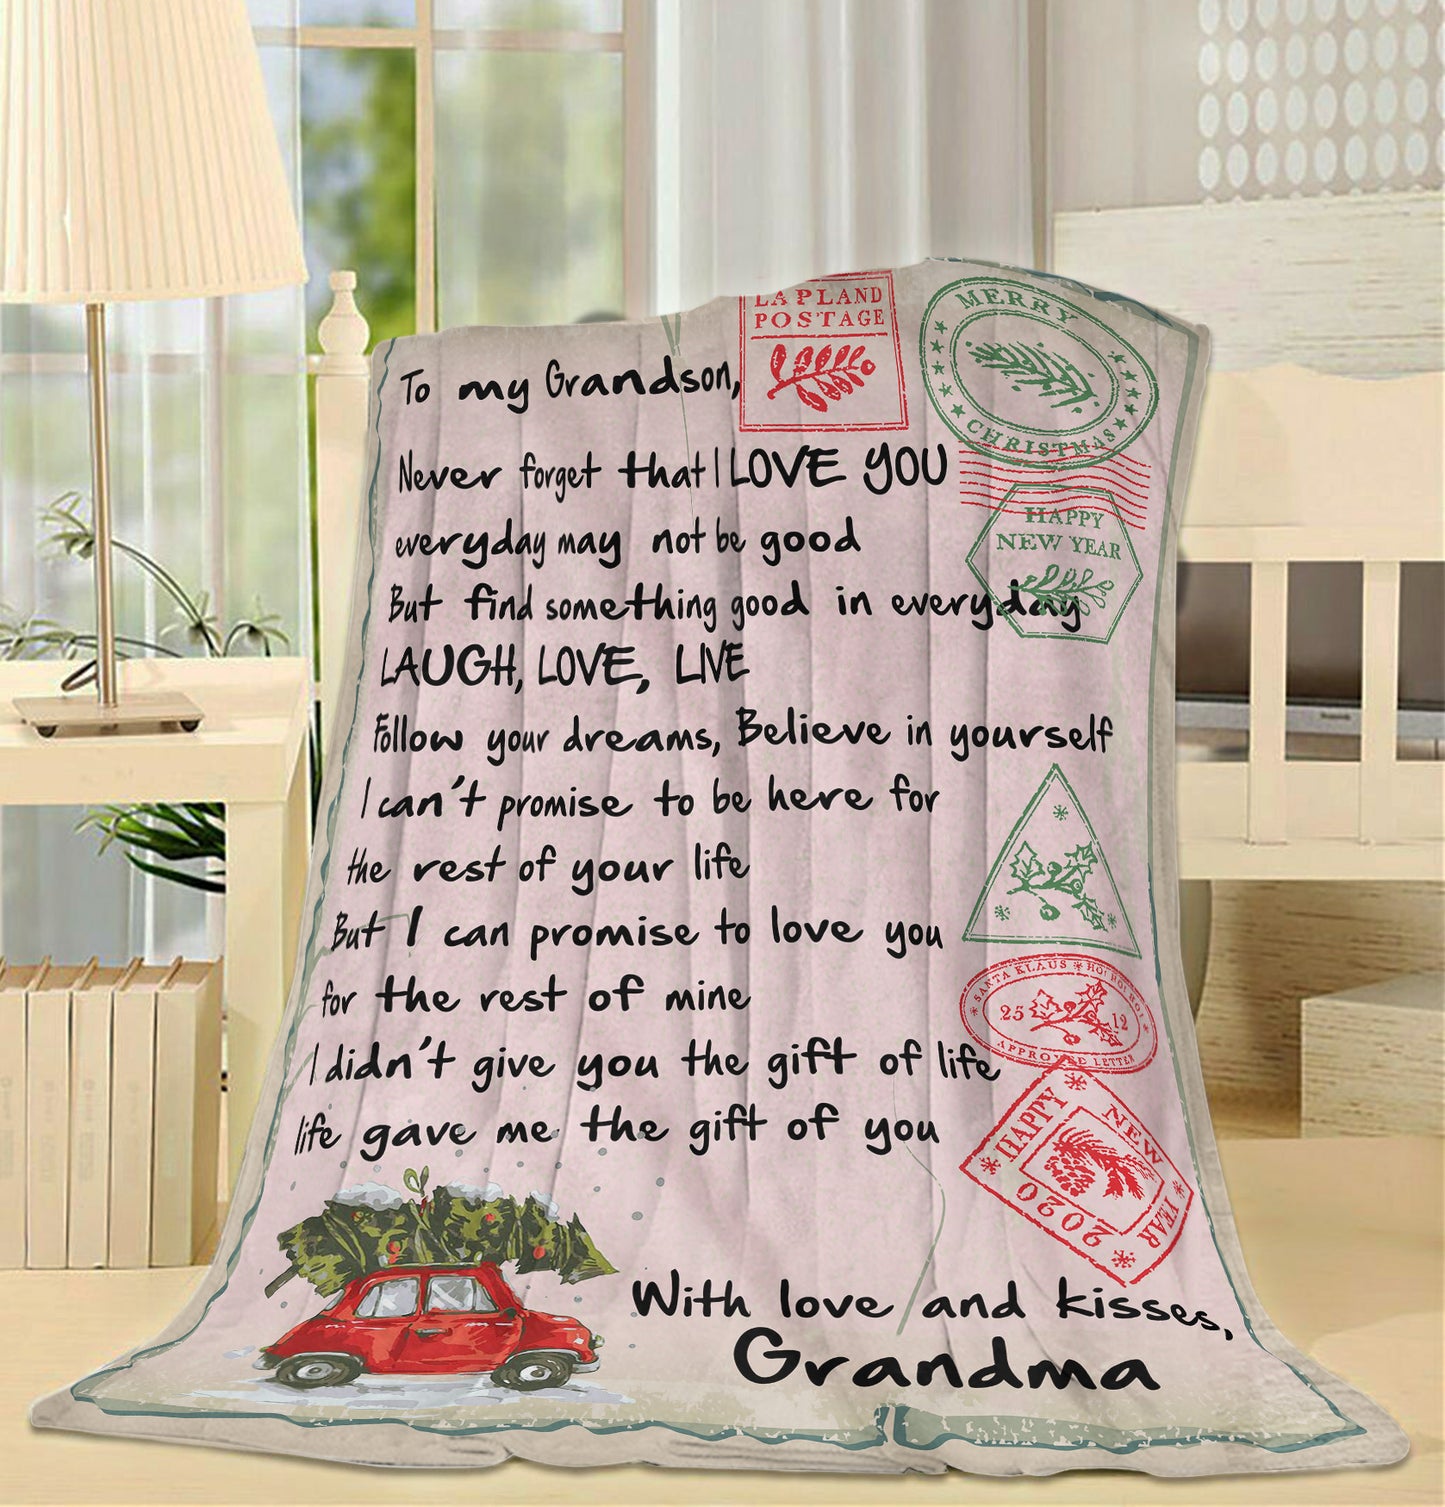 LAPLAND
POSTAGE
MERRY
CHRISTMAS
To my Grandson,
Never forget that I LOVE YOU
HAPPY
NEW YEAR
everyday may not be good
But find something good in everyday
LAUGH, LOVE, LIVE
Follow your dreams, Believe in yourself
I can't promise to be here for
the rest of your life
But I can promise to love you
for the rest of mine
SANTA KLAUS * HO! HO! HO!
25 12
I didn't give you the gift of life
life gave me the gift of you
HAPPY NEW YEAR 2020
With love and kisses,
Grandma